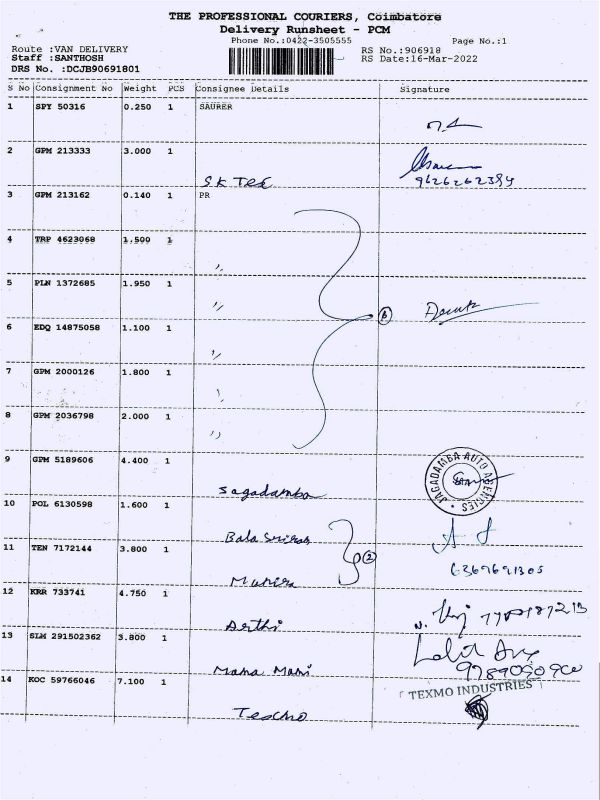 THE PROFESSIONAL COURIERS, Coimbatore
Delivery Runsheet - PCM
Phone No.:0422-3505555
Page No.:1
Route :VAN DELIVERY
RS No.:906918
Staff :SANTHOSH
RS Date:16-Mar-2022
DRS No. :DCJB90691801
S No Consignment No Weight PCS Consignee Details Signature
1 SPY 50316 0.250 1 SAURER
2 GPM 213333 3.000 1
SK Tex
9626262384
3 GPM 213162 0.140 1 PR
4 TRP 4623068 1.500 1
〃
5 PLN 1372685 1.950 1
〃
6
6 EDQ 14875058 1.100 1
〃
7 GPM 2000126 1.800 1
〃
8 GPM 2036798 2.000 1
〃
9 GPM 5189606 4.400 1
Jagadamba
JAGADAMBA AUTO AGENCIES
10 POL 6130598 1.600 1
11 TEN 7172144 3.800 1
2
6369691305
12 KRR 733741 4.750 1
Arthi
13 SLM 291502362 3.800 1
Mana Mani
14 KOC 59766046 7.100 1
TEXMO INDUSTRIES
Texmo